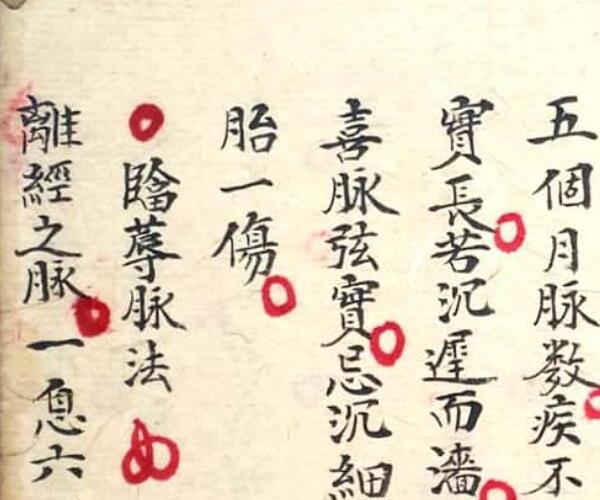 五個月脉數疾不
實長若沉遲而濇
喜脉弦實忌沉細
胎一傷
臨蓐脉法
離經之脉一息六